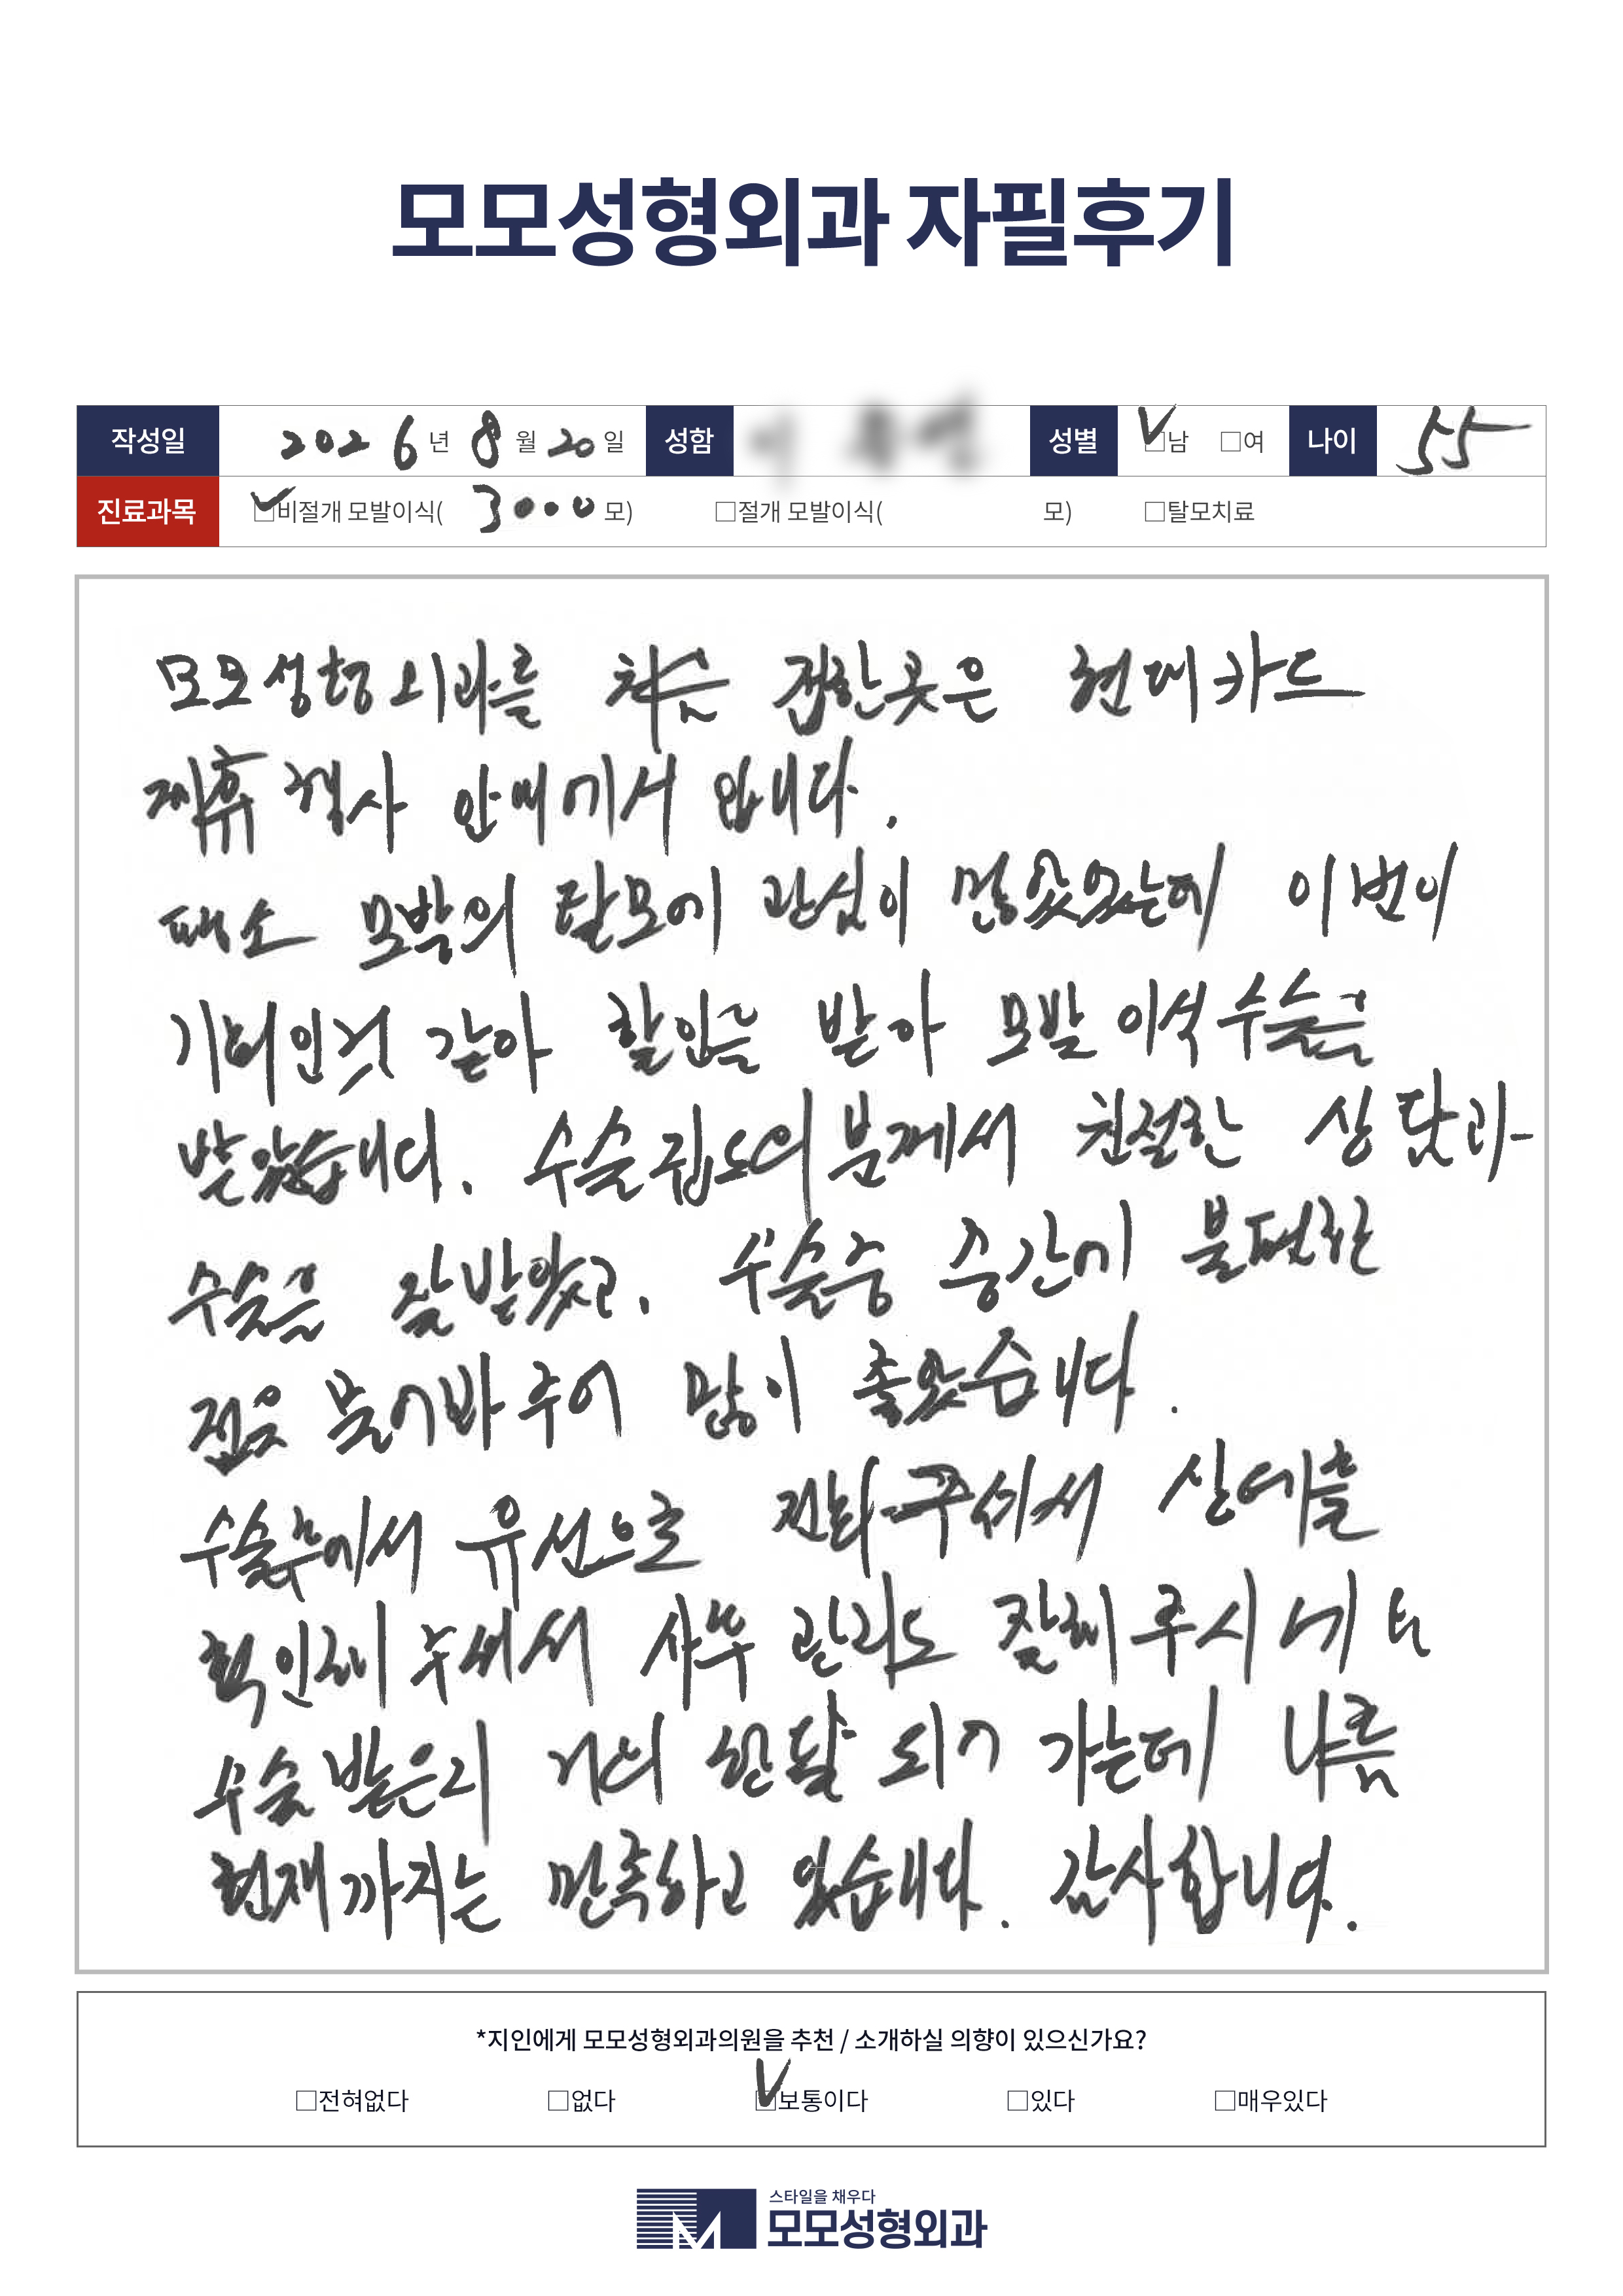 모모성형외과 자필후기
작성일 2026년 8월 20일 성함 성별 □남 □여 나이 55
진료과목 □비절개 모발이식( 3000 모) □절개 모발이식( 모) □탈모치료
모모성형외과를 처음 접한곳은 현대카드
제휴 행사 안내에서 입니다.
평소 모발의 탈모에 관심이 많았었는데 이번이
기회인것 같아 할인을 받아 모발 이식 수술을
받았습니다. 수술 집도의 분께서 친절한 상담과
수술을 잘 받았고. 수술중 중간에 불편한
점을 물어봐 주어 많이 좋았습니다.
수술후에서 유선으로 전화주셔서 상태를
확인해 주셔서 사후 관리도 잘해 주시네요
수술 받은지 거의 한달 되어 가는데 나름
현재까지는 만족하고 있습니다. 감사합니다.
*지인에게 모모성형외과의원을 추천 / 소개하실 의향이 있으신가요?
□전혀없다 □없다 □보통이다 □있다 □매우있다
스타일을 채우다
모모성형외과